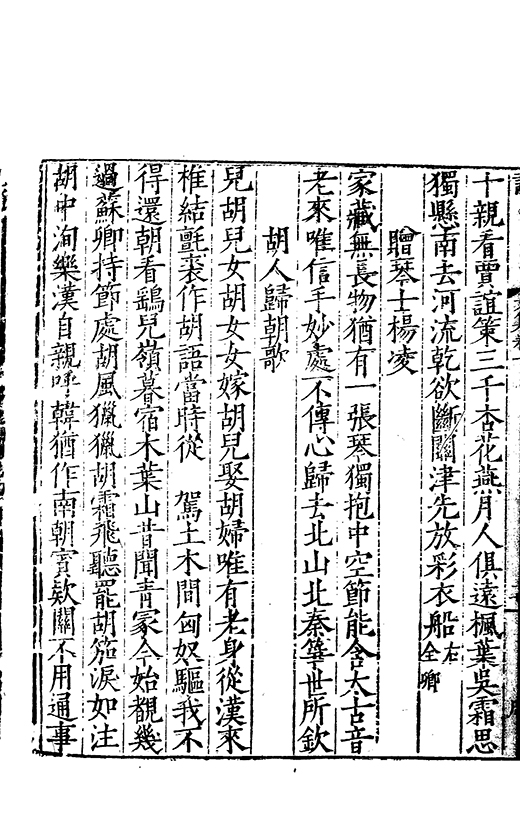 十親看賈誼策三千杏花燕月人俱遠楓葉吳霜思
獨縣南去河流乾欲斷關津先放彩衣船右全卿
贈琴士楊凌
家藏無長物猶有一張琴獨抱中空節能含太古音
老來唯信手妙處不傳心歸去北山北秦箏世所欽
胡人歸朝歌
兒胡兒女胡女女嫁胡兒娶胡婦唯有老身從漢來
椎結氈裘作胡語當時從 駕土木間匈奴驅我不
得還朝看鷂兒嶺暮宿木葉山昔聞青冢今始覩幾
過蘇卿持節處胡風獵獵胡霜飛聽罷胡笳淚如注
胡中洵樂漢自親呼韓猶作南朝賓欵關不用通事